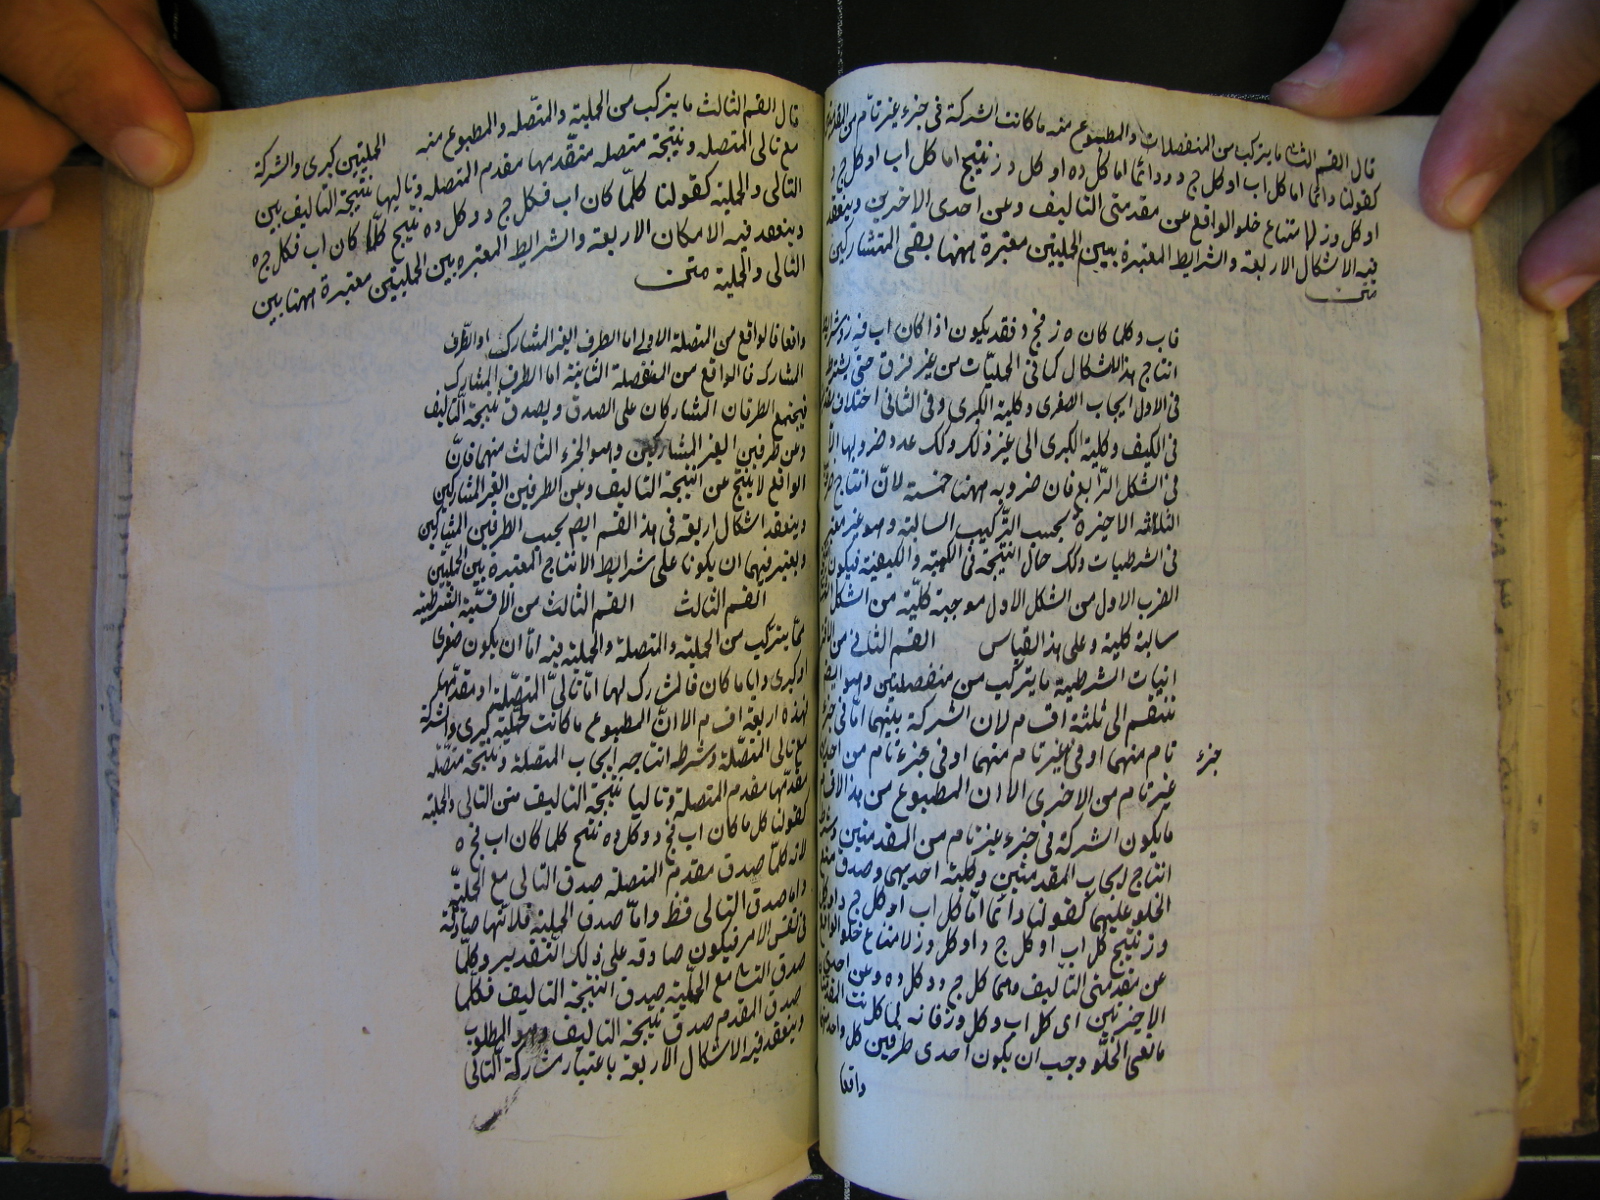 قال القسم الثانى ما يتركب من المنفصلات والمطبوع منه ما كانت الشركة فى جزء غير تام من المقدمتين
كقولنا دائما اما كل اب او كل ج د ودائما اما كل د ه او كل و ز ينتج اما كل اب او كل ج ه
او كل و ز لامتناع خلو الواقع عن مقدمتى التاليف وعن احدى الاخريين وينعقد
فيه الاشكال الاربعة والشرايط المعتبرة بين الحمليتين معتبرة ههنا بين المتشاركين
متن
فاب وكلما كان ه ز فج د فقد يكون اذا كان اب فه ز وشرايط
انتاج هذا الاشكال كما فى الحمليات من غير فرق حتى يشترط
فى الاول ايجاب الصغرى وكلية الكبرى وفى الثانى اختلاف
فى الكيف وكلية الكبرى الى غير ذلك وكك عدد ضروبها الا
فى الشكل الرابع فان ضروبه ههنا خمسة لان انتاج
الثلاثة الاخيرة بحسب التركيب السالبة وهو غير معتبر
فى الشرطيات وكك حال النتيجة فى الكمية والكيفية فيكون
الضرب الاول من الشكل الاول موجبة كلية من الشكل
سالبة كلية وعلى هذا القياس القسم الثانى من
انيات الشرطية ما يتركب من منفصلتين وهو ايضا
ينقسم الى ثلثة اقسام لان الشركة بينهما اما فى جزء
تام منهما او فى غير تام منهما او فى جزء تام من احديهما
جزء
غير تام من الاخرى الا ان المطبوع من هذا الاقسام
ما يكون الشركة فى جزء غير تام من المقدمتين وشرط
انتاج ايجاب المقدمتين وكلية احديهما وصدق منع
الخلو عليهما كقولنا دائما اما كل اب او كل ج د او كل
و ز ينتج كل اب او كل ج د او كل و ز لامتناع خلو الواقع
عن مقدمتى التاليف وهما كل ج د وكل د ه وعن احدى
الاخيرتين اى كل اب وكل و ز فانه لما كانت المقدمتان
مانعتى الخلو وجب ان يكون احدى طرفين كل واحد منهما
واقعا
قال القسم الثالث ما يتركب من الحملية والمتصلة والمطبوع منه الحمليتين كبرى والشركة
مع تالى المتصلة ونتيجة متصلة متقدمها مقدم المتصلة وتاليها نتيجة التاليف بين
التالى والحملية كقولنا كلما كان اب فكل ج د وكل د ه ينتج كلما كان اب فكل ج ه
وينعقد فيه الامكان الاربعة والشرايط المعتبره بين الحمليتين معتبرة ههنا بين
التالى والحملية متن
واقعا فالواقع من المتصلة الاولى اما الطرف الغير المشارك او الطرف
المشارك فالواقع من المنفصلة الثانية اما الطرف المشارك
فيجتمع الطرفان المشاركان على الصدق ويصدق نتيجة التاليف
وعن طرفين الغير المشاركين وهو الجزء الثالث منهما فان
الواقع لا ينتج عن انتيجة التاليف وعن الطرفين الغير المشاركين
وينعقد اشكال اربعة فى هذا القسم ايضا بحسب الطرفين المشاركين
ويعتبر فيهما ان يكونا على شرايط الانتاج المعتبرة بين الحمليتين
القسم الثالث القسم الثالث من الاقسية الشرطية
مما يتركب من الحملية والمتصلة والحملية فيه اما ان يكون صغرى
او كبرى وايا ما كان فالمشارك لها اما تالى المتصلة او مقدمها
فهذه اربعة اقسام الا ان المطبوع ما كانت الحملية كبرى والشركة
مع تالى المتصلة وشرطه انتاجه ايجاب المتصلة ونتيجة متصلة
مقدمها مقدم المتصلة وتاليا نتيجة التاليف من التالى والحملية
كقولنا كل ما كان اب فج د وكل د ه ينتج كلما كان اب فج ه
لانه كلما صدق مقدم المتصلة صدق التالى مع الحملية
واما صدق التالى فظ واما صدق الحملية فلانها صادقة
فى نفس الامر فيكون صادقه على ذلك التقدير وكلما
صدق التالى مع الحملية صدق انتيجة التاليف فكلما
صدق المقدم صدق نتيجة التاليف وهو المطلوب
وينعقد فيه الاشكال الاربعة باعتبار مشاركة التالى